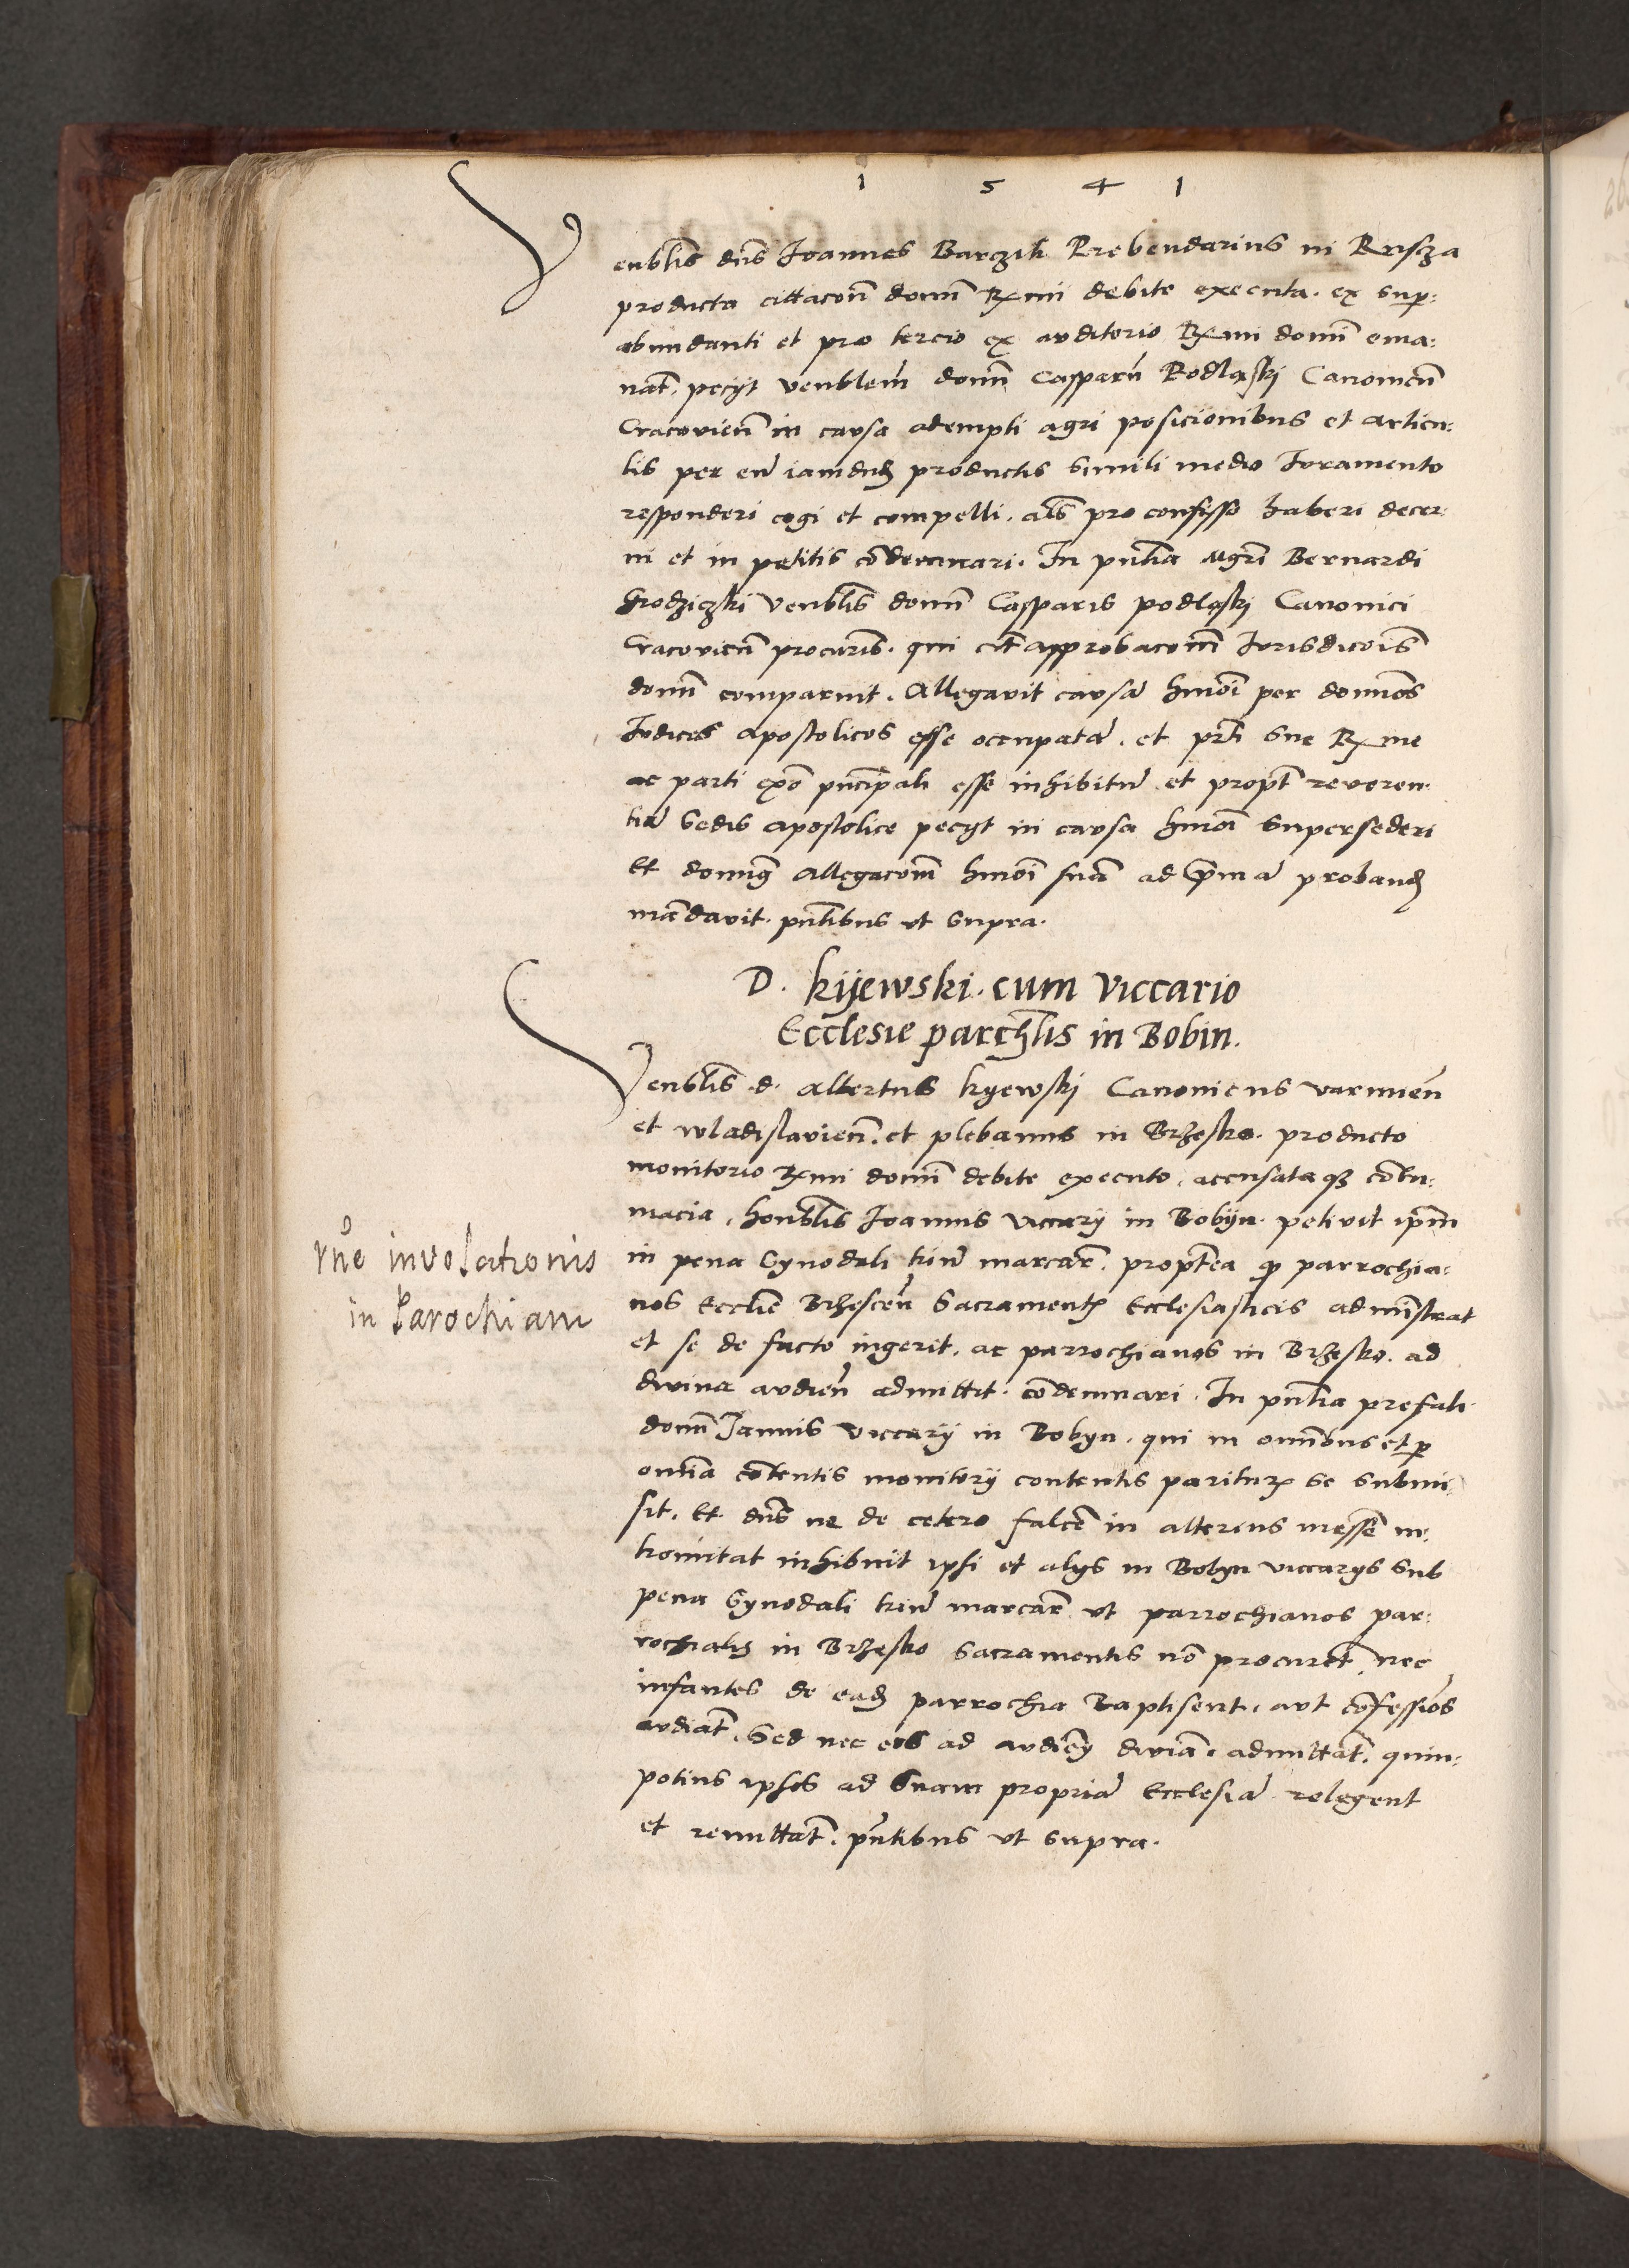 1 5 4 1
Venblis dns Joannes Barczik Prebendarius in Ruscza
producta cittacon domi Rxmi debite executa. ex sup:
abundanti et pro tercio ex auditorio Rxmi domi ema:
nat. pecyt venblem domn Casparu Podlaskj Canonicu
Cracovien in causa adempti agri posicionibus et articu:
lis per eu iamdud productis simili medio Juramento
responderi cogi et compelli. als pro confesso haberi decer:
ni et in petitis condemnari. In pntia Mgri Bernardi
Grodziczki venblis domi Casparis podlaskj Canonici
Cracovien procuris. qui cit approbacom Jurisdicois
domi comparuit. Allegavit causa hmoi per dominos
Judices Apostolicos esse occupata. et prti sue Rxme
ac parti pncipali esse inhibitu et propt reveren:
tia Sedis apostolice pecyt in causa hmoi supersederi
Et dominus allegacom hmoi sua ad prima proband
madavit. pntibus ut supra.
D. kijewski. cum Viccario
Ecclesie parrchlis in Bobin.
Venblis. d. Albertus kyewskj Canonicus varmien
et wladislavien. et plebanus in Brzesko. producto
monitorio Rxmi domi debite executo, accusataqz contu:
macia, honblis Joannis viccarij in Bobijn. petivit ipm
in pena Synodali triu marcar. proptea qp parrochia:
nos Ecclie Brzescen Sacrament Ecclesiasticis administrat
et se de facto ingerit. ac parrochianos in Brzesko. ad
divina audien admittit. condemnari. In pntia prefati
domi Joannis viccarij in Bobyn. qui in omnibus et p
omnia contentis monitorij contentis paritur se submi:
sit. Et dns ne de cetero falce in alterius messe in:
tromitat inhibuit ipsi et alijs in Bobyn viccarijs sub
pena Synodali triu marcar ut parrochianos par:
rochialis in Brzesko Sacramentis no procuret nec
infantes de ead parrochia Baptisent. aut cofessios
audiat. Sed nec eos ad audien divia. admittat. quin:
potius ipsos ad suam propria Ecclesia relegent
et remittat. pntibus ut supra.
rne involationis
in Parochiam